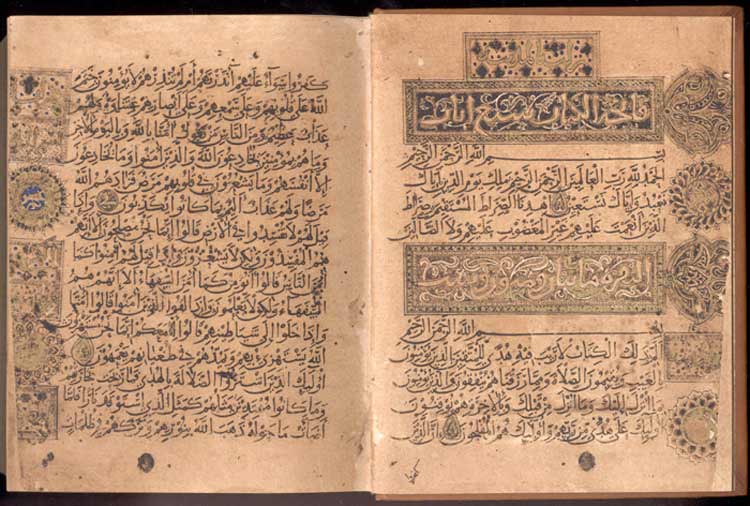 فاتحة الكتاب سبع آيات
بسم الله الرحمن الرحيم
الحمد لله رب العالمين الرحمن الرحيم ملك يوم الدين إياك
نعبد وإياك نستعين اهدنا الصراط المستقيم صراط
الذين أنعمت عليهم غير المغضوب عليهم ولا الضالين
البقرة مائتان وثمانون وست
بسم الله الرحمن الرحيم
الم ذلك الكتاب لا ريب فيه هدى للمتقين الذين يؤمنون
بالغيب ويقيمون الصلاة ومما رزقناهم ينفقون والذين يؤمنون
بما أنزل إليك وما أنزل من قبلك وبالآخرة هم يوقنون
أولئك على هدى من ربهم وأولئك هم المفلحون إن الذين
كفروا سواء عليهم أأنذرتهم أم لم تنذرهم لا يؤمنون ختم
الله على قلوبهم وعلى سمعهم وعلى أبصارهم غشاوة ولهم
عذاب عظيم ومن الناس من يقول آمنا بالله وباليوم الآخر
وما هم بمؤمنين يخادعون الله والذين آمنوا وما يخادعون
إلا أنفسهم وما يشعرون في قلوبهم مرض فزادهم الله
مرضا ولهم عذاب أليم بما كانوا يكذبون وإذا
قيل لهم لا تفسدوا في الأرض قالوا إنما نحن مصلحون ألا إنهم
هم المفسدون ولكن لا يشعرون وإذا قيل لهم آمنوا كما
آمن الناس قالوا أنؤمن كما آمن السفهاء ألا إنهم هم
السفهاء ولكن لا يعلمون وإذا لقوا الذين آمنوا قالوا آمنا
وإذا خلوا إلى شياطينهم قالوا إنا معكم إنما نحن مستهزئون
الله يستهزئ بهم ويمدهم في طغيانهم يعمهون
أولئك الذين اشتروا الضلالة بالهدى فما ربحت تجارتهم
وما كانوا مهتدين مثلهم كمثل الذي استوقد نارا فلما
أضاءت ما حوله ذهب الله بنورهم وتركهم في ظلمات